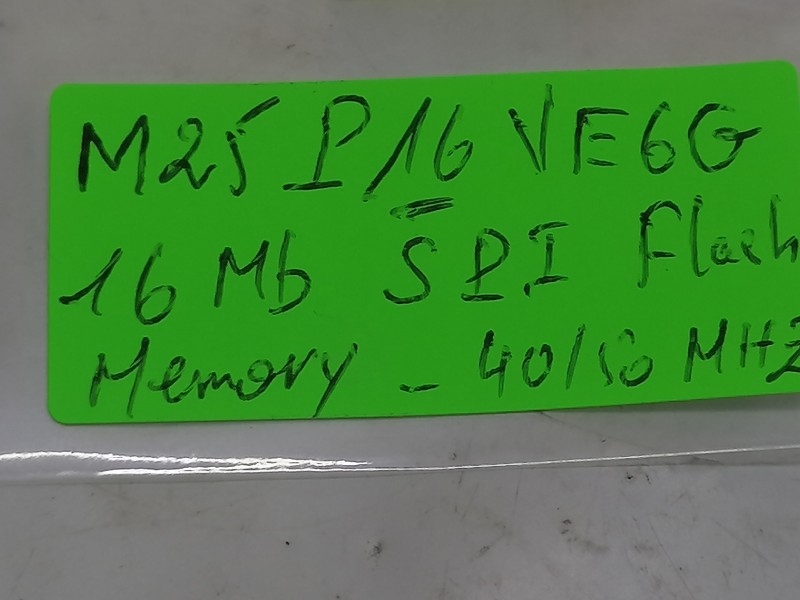 M25P16VE6G
16 Mb SPI Flash
Memory - 40/50 MHz